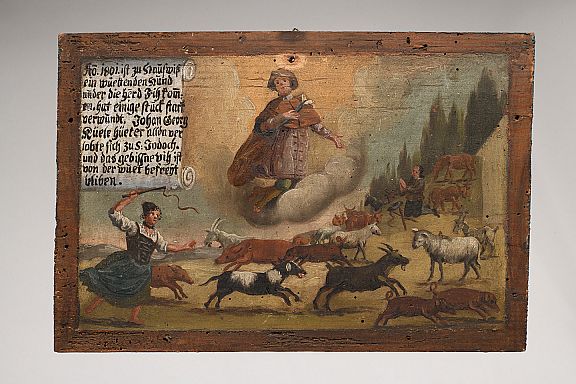 Ao. 1801. ist zu
ein wüettenden Hund
under die herd Vih kom̄en,
hat einige stuck starck
verwundt. Johan Georg
hüeter alda ver
lobte sich zu S. Jodoch.
und das gebissne vih ist
von der wuet befreyt
bliben.